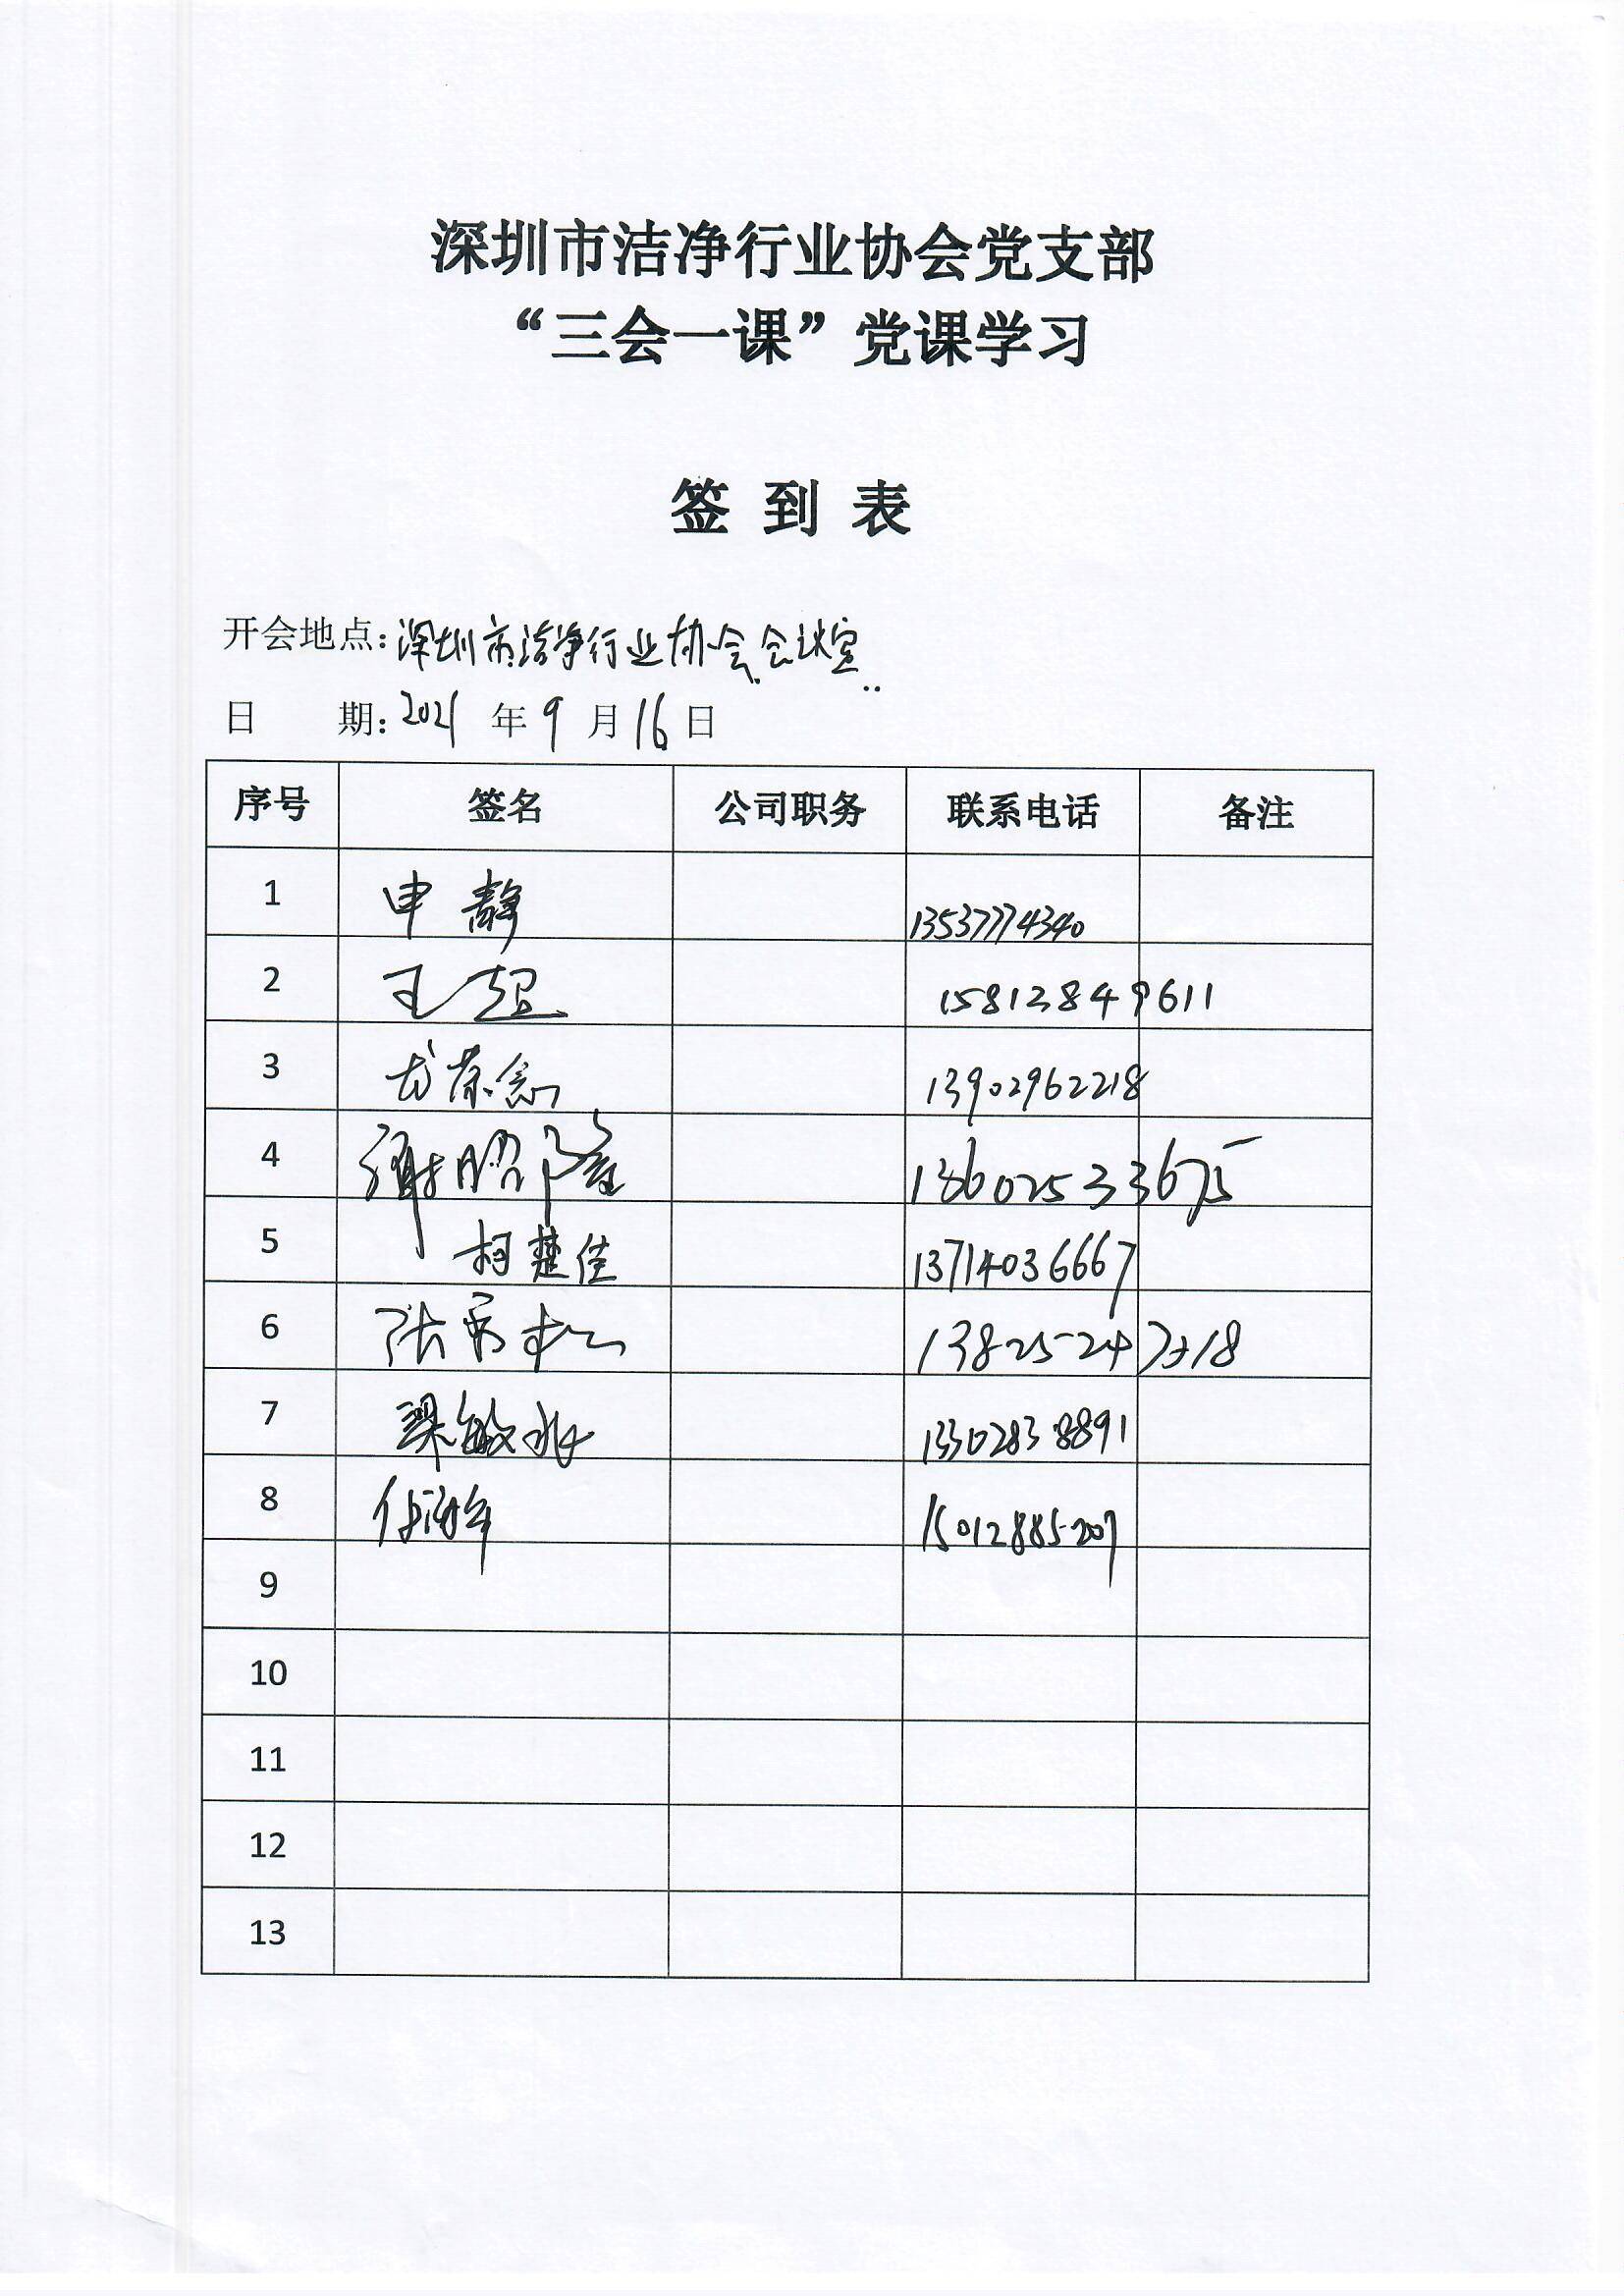 深圳市洁净行业协会党支部
“三会一课”党课学习
签到表
开会地点:深圳市洁净行业协会会议室
日 期:2021年9月16日
序号 签名 公司职务 联系电话 备注
1 申静 13537774340
2 王超 15812849611
3 13902962218
4 谢昭隆 13602533675
5 柯楚佳 13714036667
6 张
7 梁敏 13302838891
8 15012885207
9
10
11
12
13